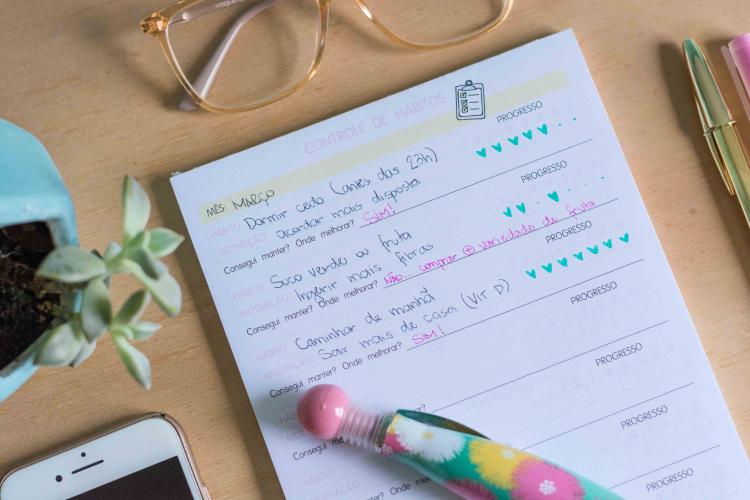 CONTROLE DE HÁBITOS
MÊS: MARÇO
PROGRESSO
HÁBITO: Dormir cedo (antes das 23h)
MOTIVAÇÃO: acordar mais disposta
Consegui manter? Onde melhorar? SIM!
PROGRESSO
HÁBITO: Suco verde ou fruta
MOTIVAÇÃO: Ingerir mais fibras
Consegui manter? Onde melhorar? NÃO... comprar + variedade de fruta
PROGRESSO
HÁBITO: Caminhar de manhã
MOTIVAÇÃO: Sair mais de casa (VIT D)
Consegui manter? Onde melhorar? SIM!
PROGRESSO
HÁBITO
Consegui
PROGRESSO
HÁBITO
MOTIVAÇÃO
Consegui
PROGRESSO
PROGRESSO